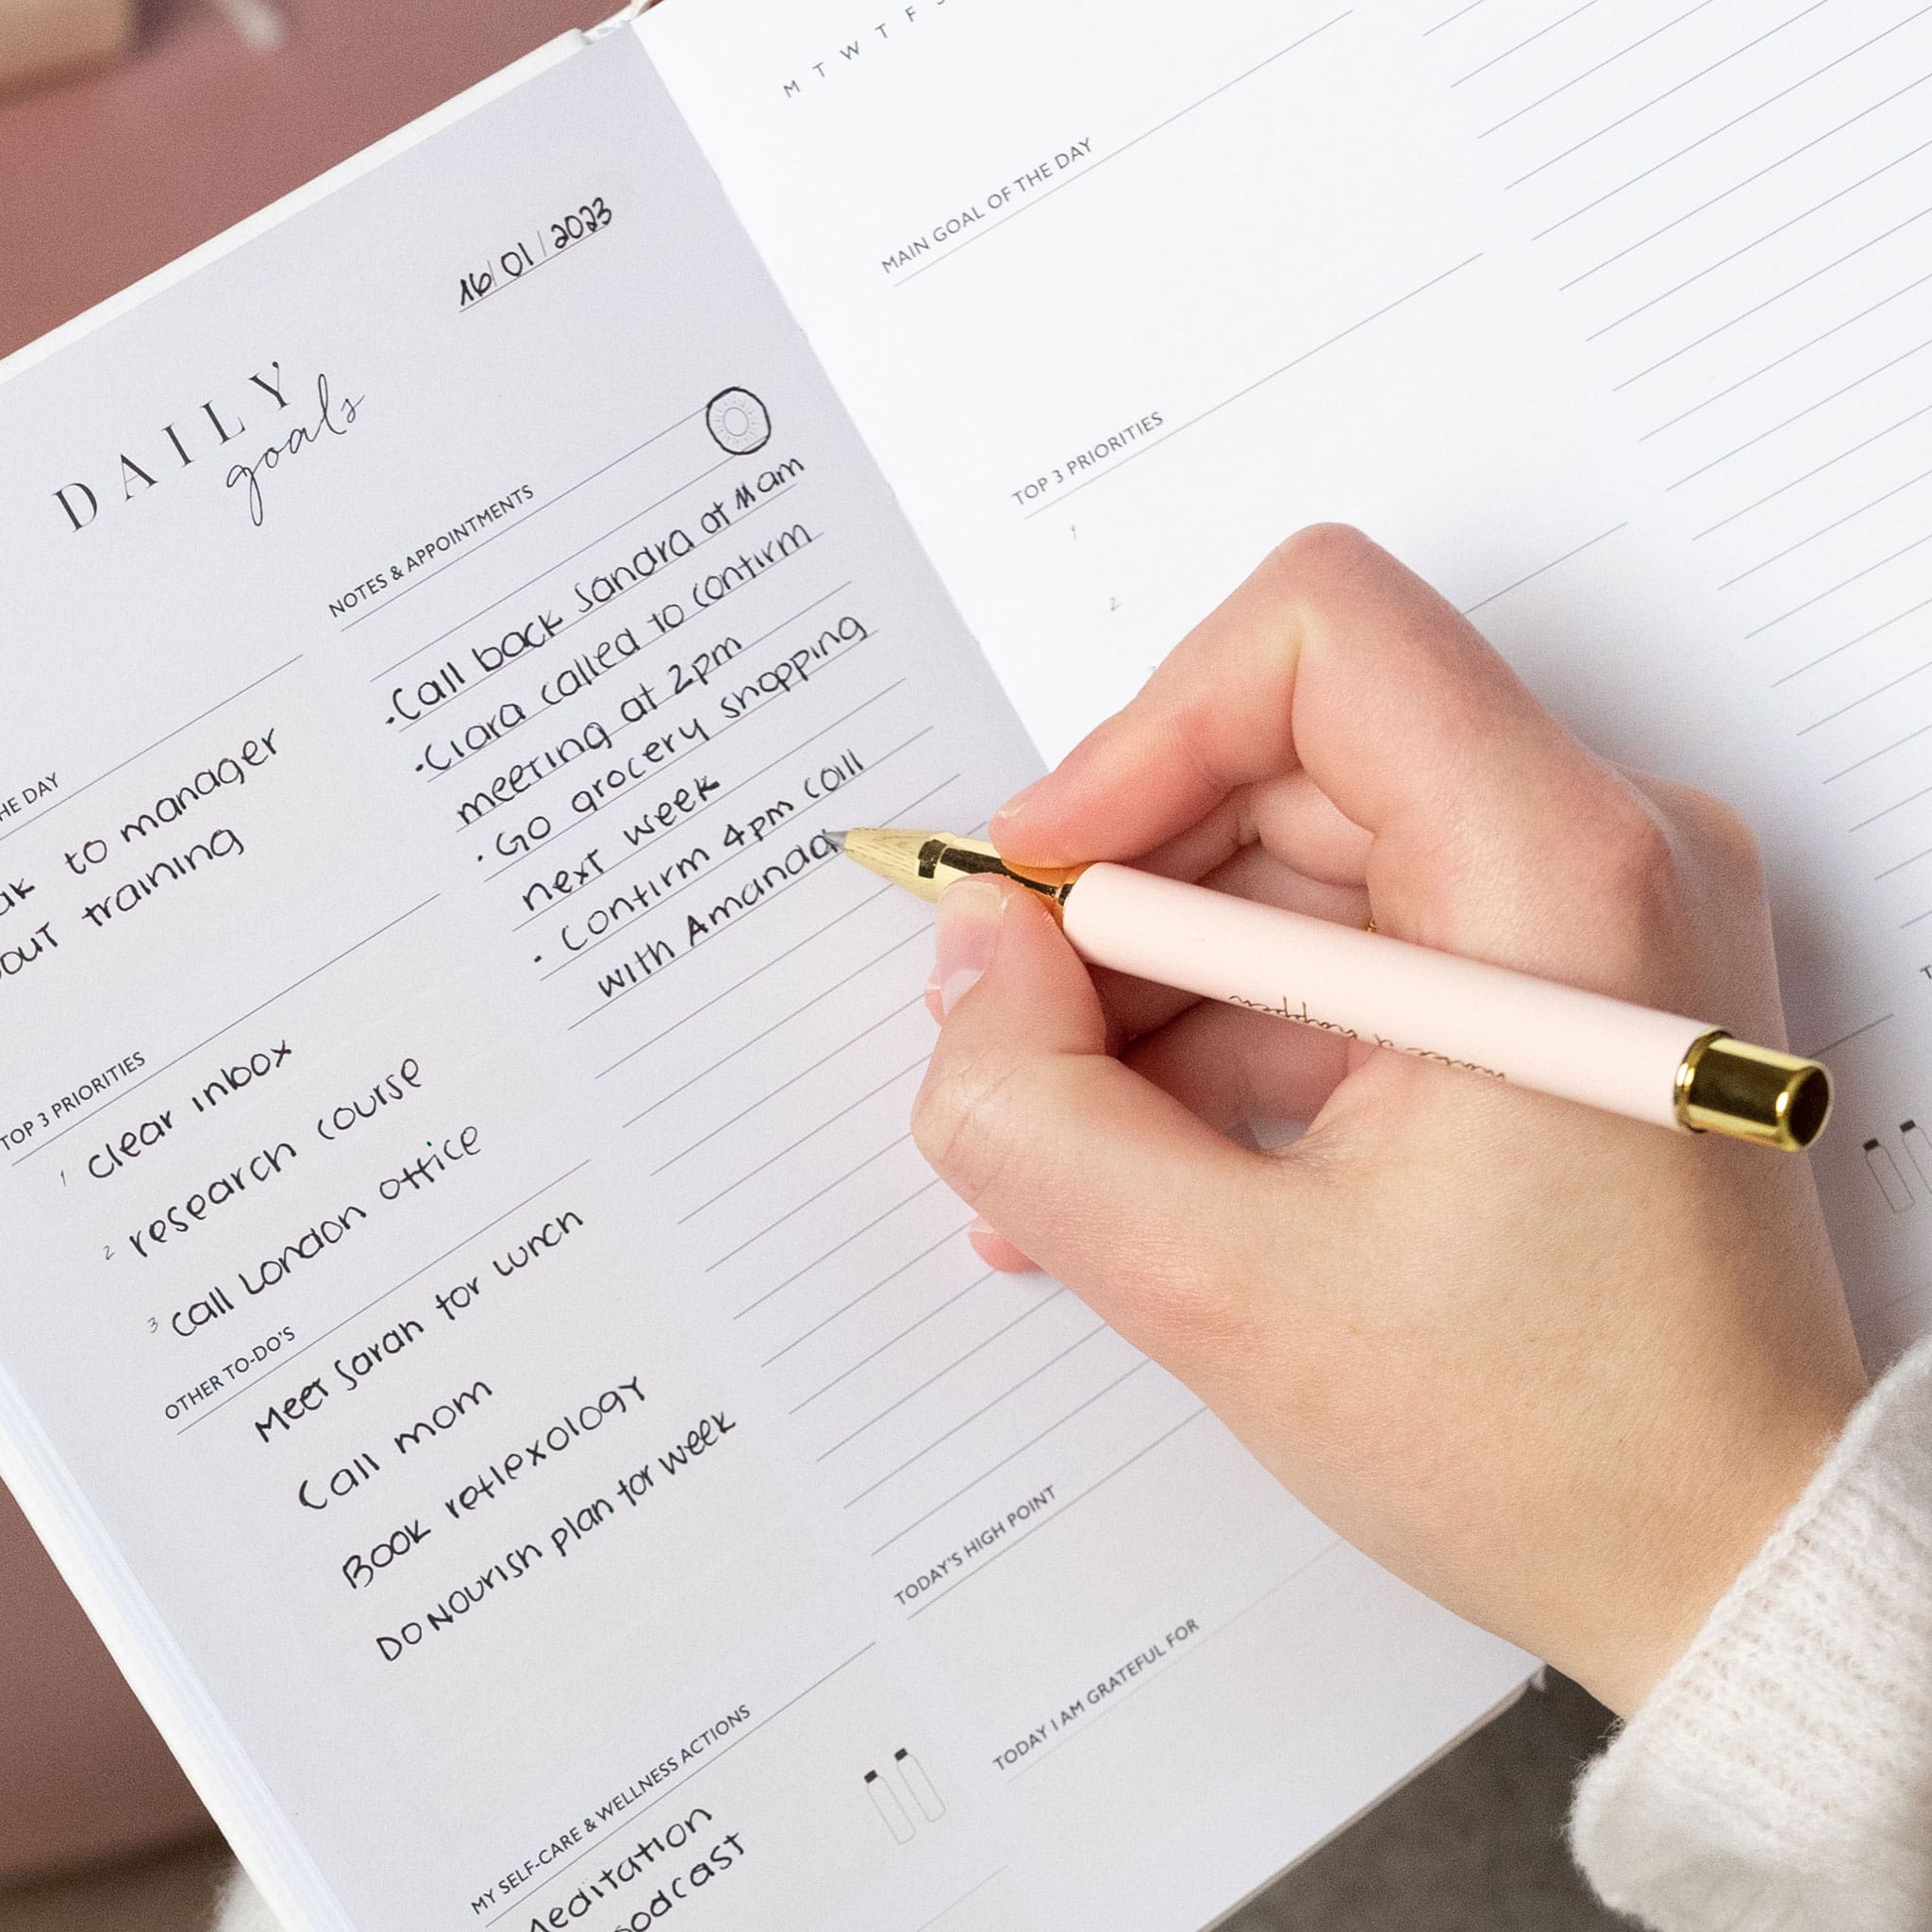 16/01/2023
DAILY
goals
HE DAY
to manager
training
TOP 3 PRIORITIES
1 clear inbox
2 research course
3 call London office
OTHER TO-DO'S
Meet Sarah for lunch
Call mom
Book reflexology
Do Nourish plan for week
MY SELF-CARE & WELLNESS ACTIONS
Meditation
podcast
NOTES & APPOINTMENTS
• Call back Sandra at 11am
• Clara called to confirm
meeting at 2pm
• Go grocery shopping
next week
• Confirm 4pm call
with Amanda
TODAY'S HIGH POINT
TODAY I AM GRATEFUL FOR
M T W T F
MAIN GOAL OF THE DAY
TOP 3 PRIORITIES
1
2